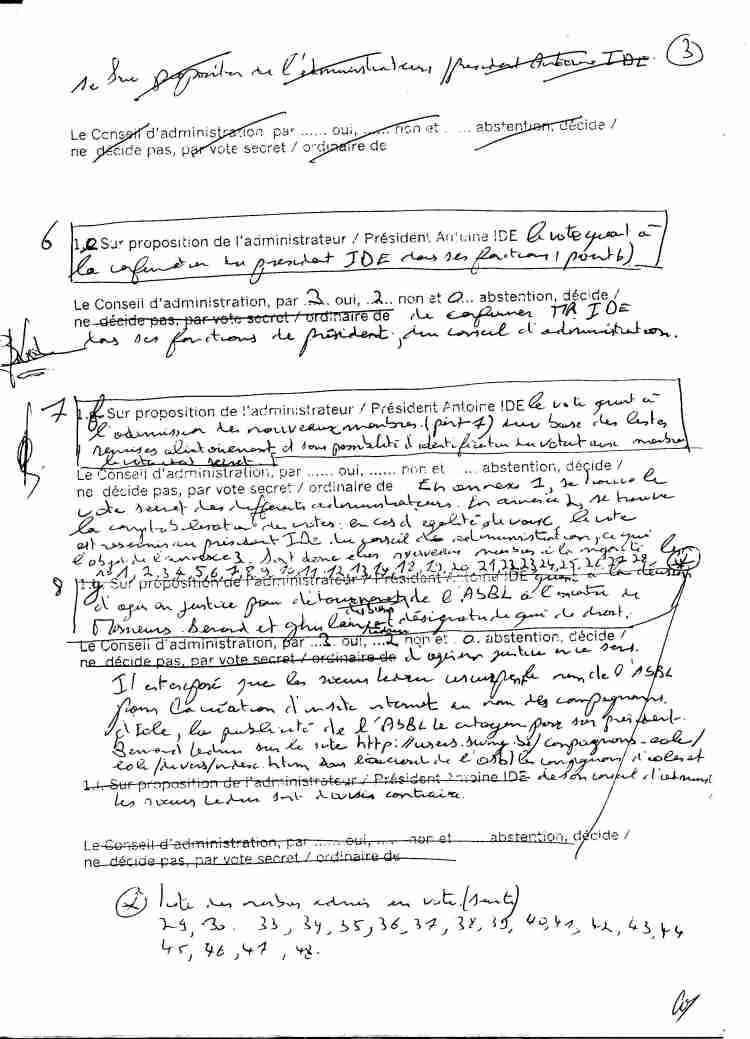 3
1e Sur proposition de l'administrateur / président Antoine IDE.
Le Conseil d'administration par ...... oui, ...... non et . ... abstention, décide /
ne décide pas, par vote secret / ordinaire de
6 1.e Sur proposition de l'administrateur / Président Antoine IDE le vote quant à
la confirmation du président IDE dans ses fonctions (point 6)
Le Conseil d'administration, par .3.. oui, .2.. non et 0... abstention, décide /
ne décide pas, par vote secret / ordinaire de de confirmer MR IDE
dans ses fonctions de président, du conseil d'administration.
7 1.f Sur proposition de l'administrateur / Président Antoine IDE le vote quant à
l'admission des nouveaux membres (point 7) sur base des listes
remises aléatoirement et sans possibilité d'identification du votant aux membres
secret
Le Conseil d'administration, par ...... oui, ...... non et ... abstention, décide /
ne décide pas, par vote secret / ordinaire de En annexe 1, se trouve le
vote secret des différents administrateurs. En annexe 2, se trouve
la comptabilisation des votes: en cas d'égalité de voix, le vote
est au président IDE du conseil d'administration, ce qui
l'objet de l'annexe 3. Sont donc élus nouveaux membres à la majorité les
n° 1, 2, 3, 4, 5, 6, 7, 8, 9, 10, 11, 12, 13, 14, 18, 19, 20, 21, 22, 23, 24, 25, 26, 27, 28,
8 1.g. Sur proposition de l'administrateur / Président Antoine IDE quant à la décision
d'agir en justice pour détournement de l'ASBL à l'encontre de
Messieurs Bernard et Ghislain et désignation de qui de droit.
Le Conseil d'administration, par ..3.. oui, ...2 non et .0. abstention, décide /
ne décide pas, par vote secret / ordinaire de d'agir en justice en ce sens.
Il est exposé que les sieurs Ledun usurpent le nom de l'ASBL
pour la création d'un site internet au nom des compagnons
d'Eole, la publicité de l'ASBL le citoyen par son président
Bernard Ledun sur le site http://users.swing.be/compagnons-eole/
eole/divers/index.htm sans l'accord de l'asbl les compagnons d'eole et
1.h. Sur proposition de l'administrateur / Président Antoine IDE de son conseil d'administ
Les sieurs Ledun sont d'avis contraire.
Le Conseil d'administration, par ...... oui, .... non et ... abstention, décide /
ne décide pas, par vote secret / ordinaire de
liste des membres admis au vote. (suite)
29, 30. 33, 34, 35, 36, 37, 38, 39, 40, 41, 42, 43, 44
45, 46, 47, 48.